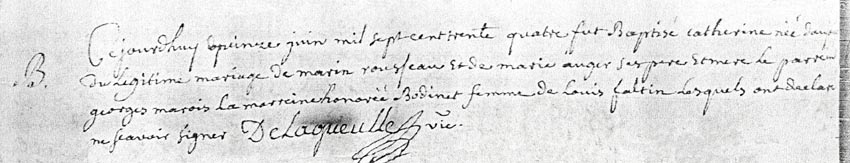 B. Cejourdhuy quinze juin mil sept cent trente quatre fut Baptisé catherine née dau
du legitime mariage de marin rousseau et de marie auger ses pere et mere le parrein
georges marois la marreine honoréé Bodinet femme de Louis faltin Lesquels ont declaré
ne scavoir signer DeLaqueulle vic.